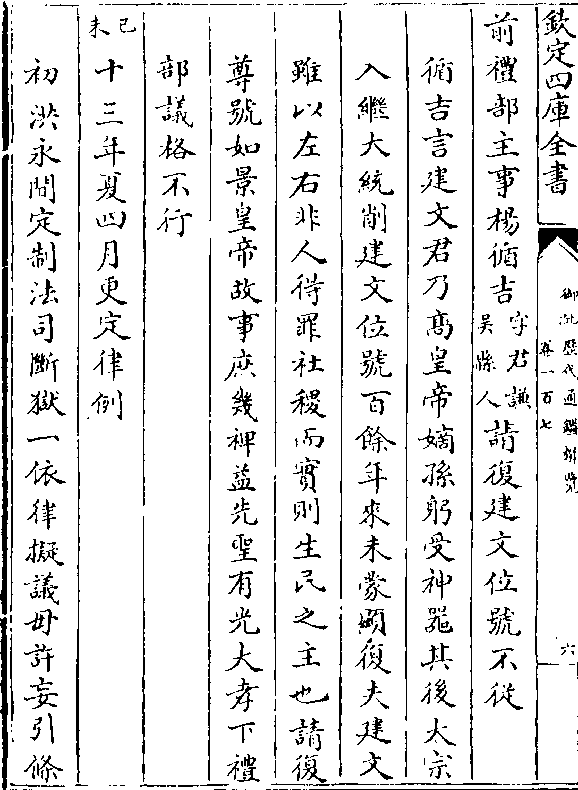 欽定四庫全書
御批歷代通鑑輯覽
卷一百七
六
前禮部主事楊循吉字君謙吳縣人請復建文位號不從
循吉言建文君乃髙皇帝嫡孫躬受神器其後太宗
入繼大統削建文位號百餘年來未蒙顯復夫建文
雖以左右非人得罪社稷而實則生民之主也請復
尊號如景皇帝故事庶幾裨益先聖有光大孝下禮
部議格不行
己未十三年夏四月更定律例
初洪永間定制法司斷獄一依律擬議毋許妄引條